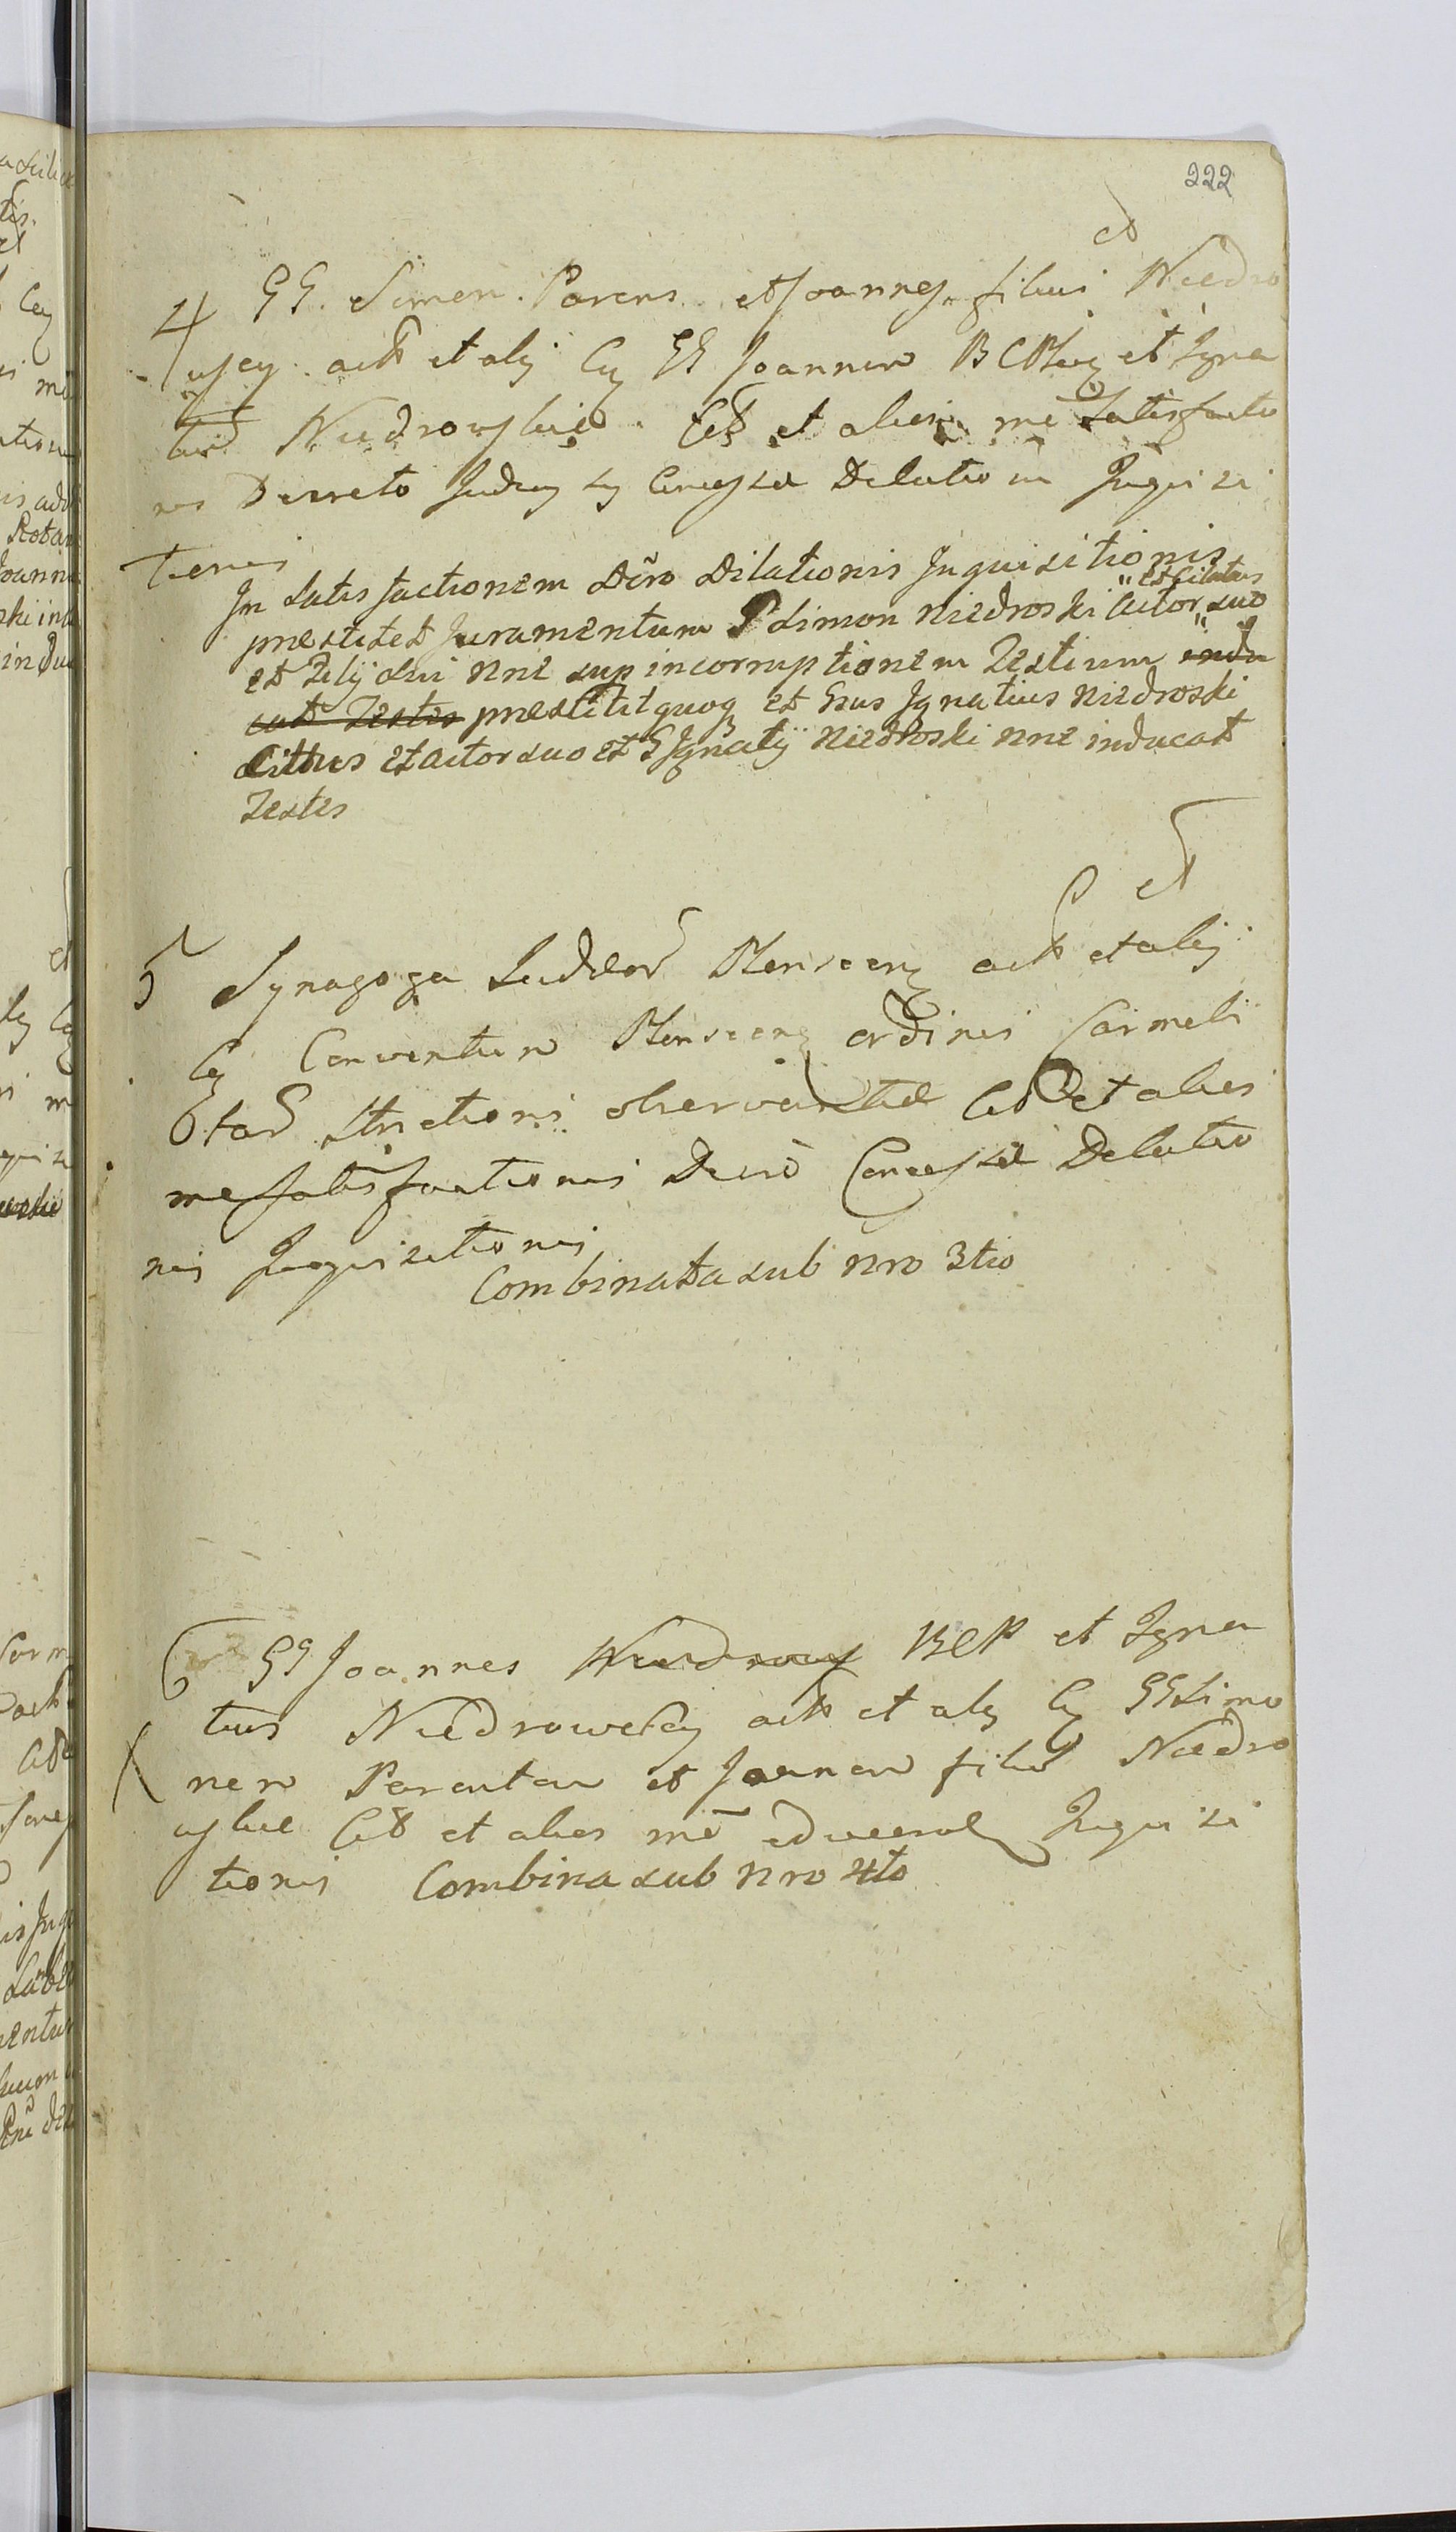 222
et
4 GG. Simon. Parens et Joannes filius Niedro
uscy. act et alij Cum GG Joannem BCP et Igna
tium Niedrowskie. Citt et alios. me Satisfactio
nis Decreto Concessa Dilatio Inquisi
tionis
In Satisfactionem Dcro Dilationis Inquisitionis
praestitet Juramentum G Simon Niedroski Actor "et Citatus" suo
et Filij sui nne sup incorruptionem Testium indu
cat Testes praestitit quoq et Gsus Ignatius Niedroski
Cittus et actor suo et G Ignatij Niedroski nne inducat
Testes
et
5 Synagoga Judeor act et alij
Cum Conventum ordinis Carmeli
tar Strictioris observantiae Citt et alios
me Satisfactionis Decro Concessae Dilatio
nis Inquisitionis
Combinata sub nro 3tio
6 GG Joannes BCP et Igna
tius Niedrowscy act et alij Cum GG Simo
nem Parentem et Joannem filium Niedro
uskie Citt et alios me Inquisi
tionis Combina sub nro 4to